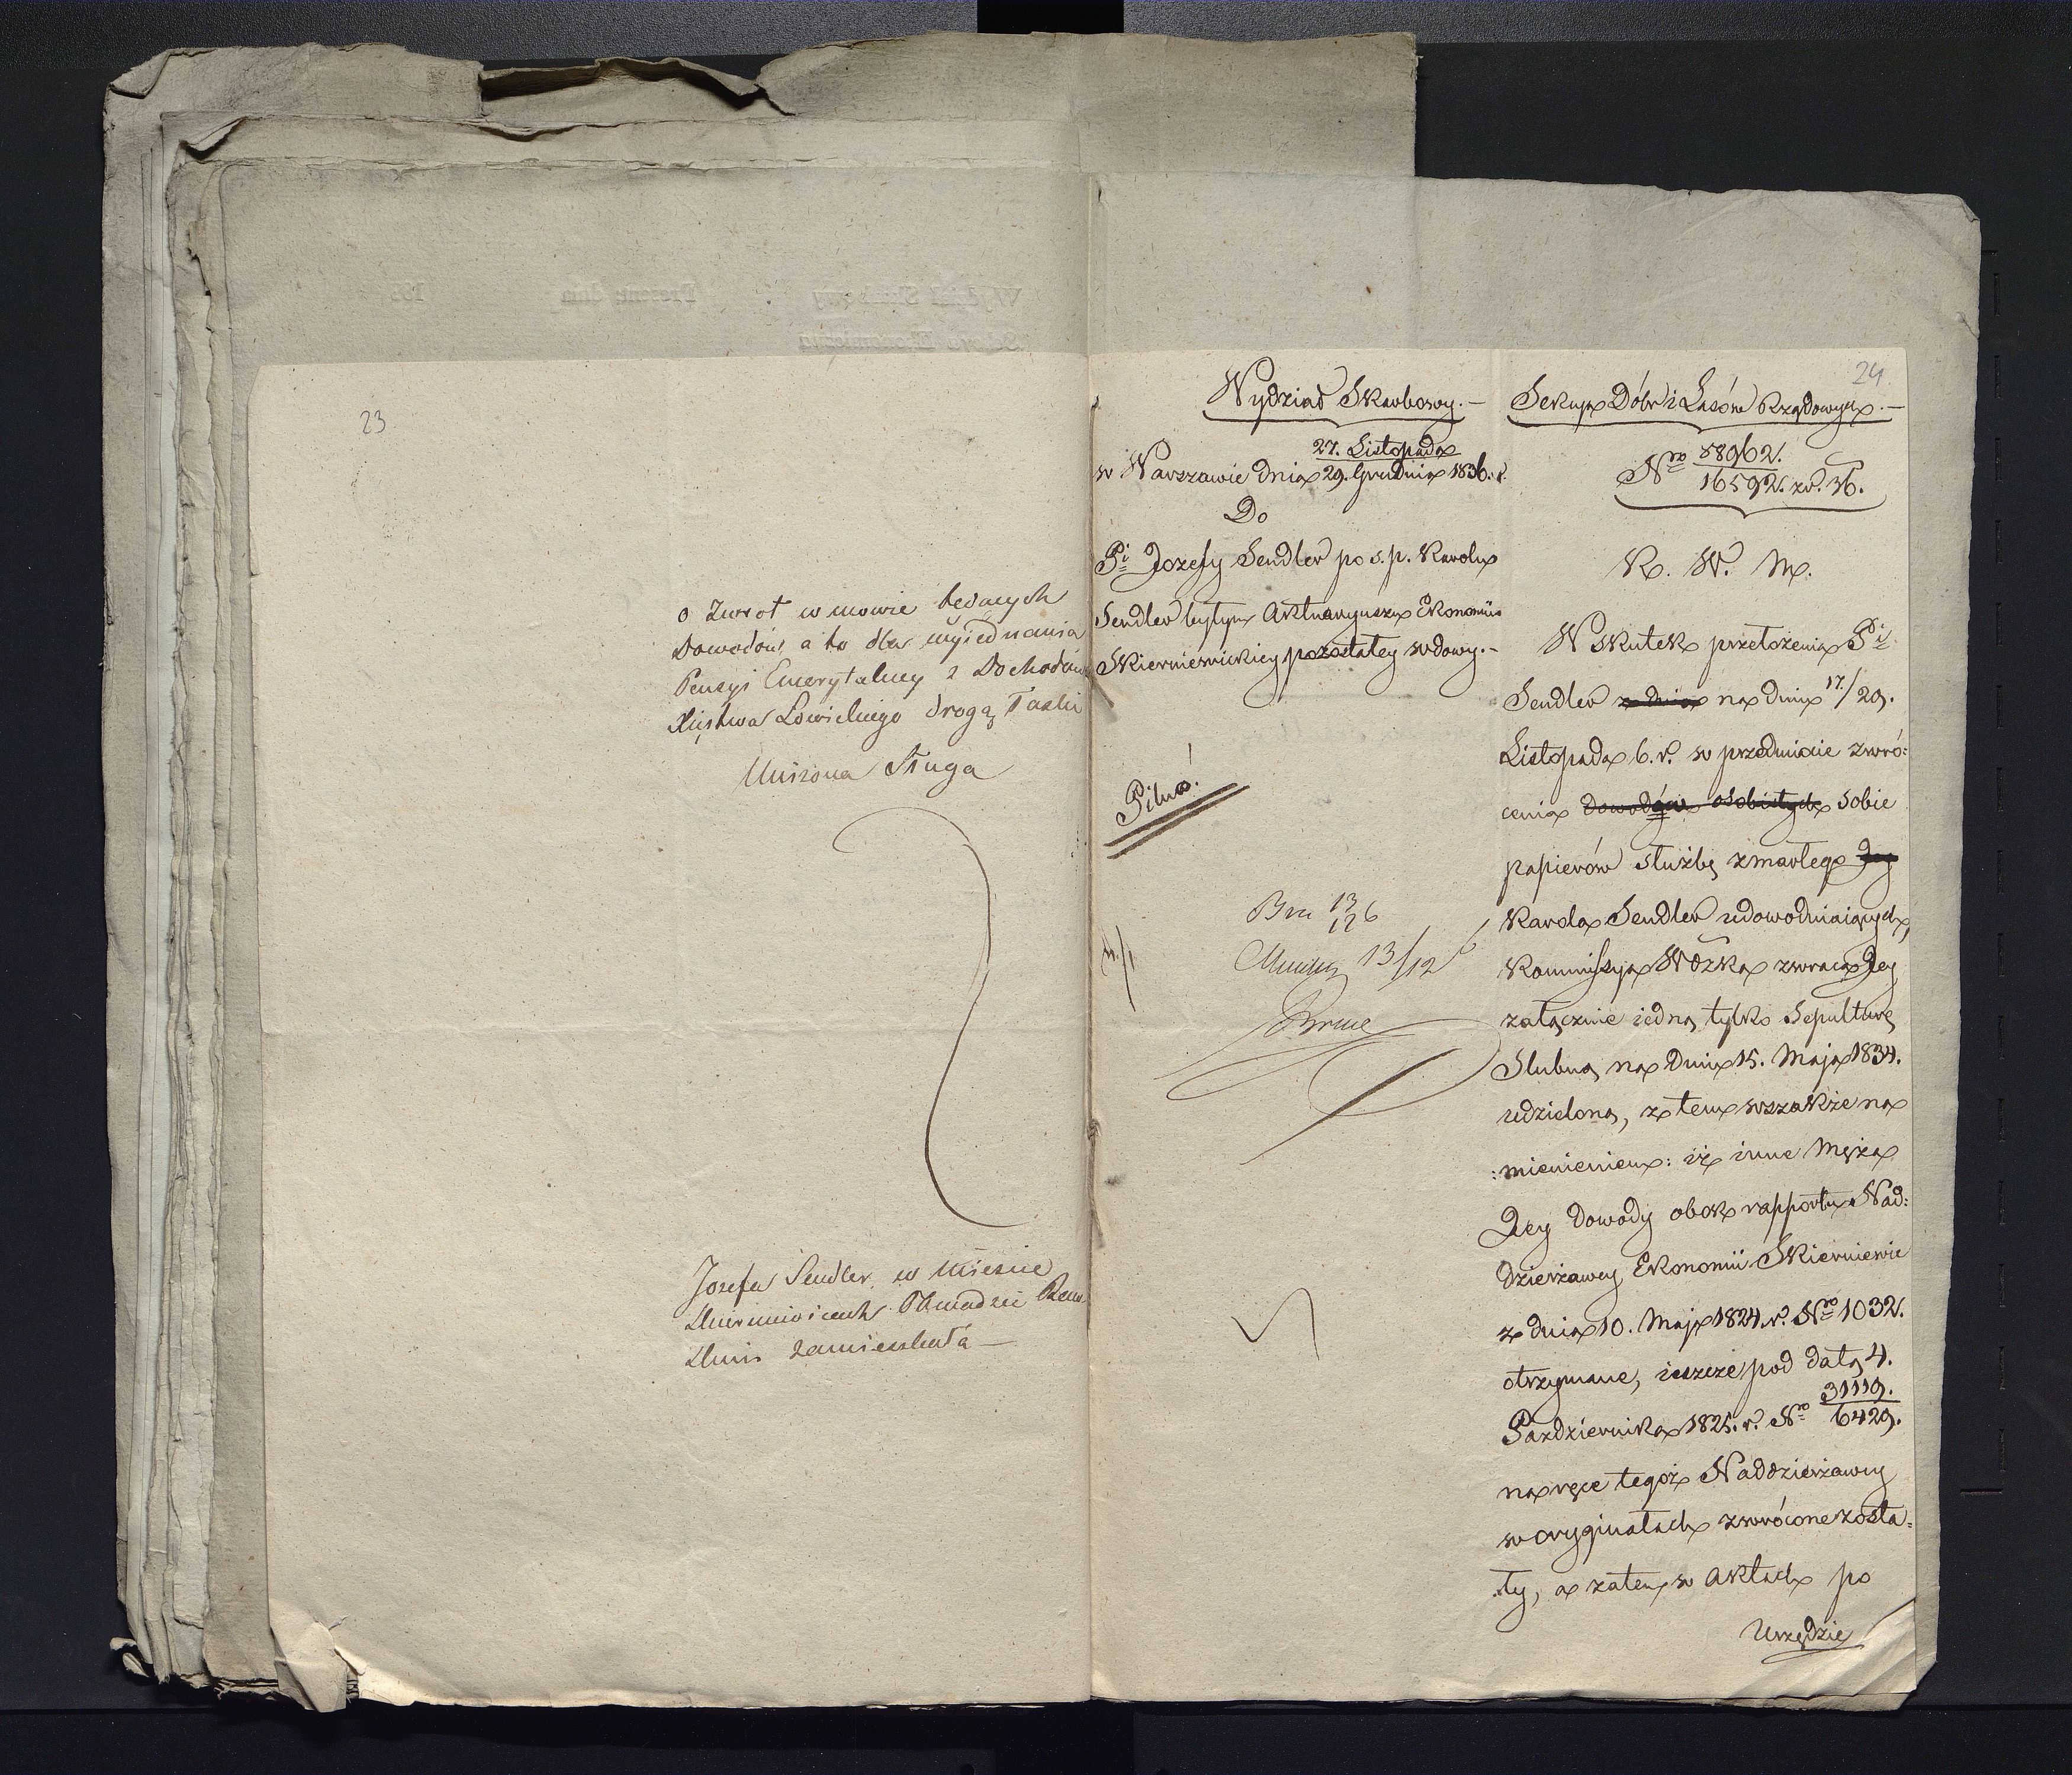 23
o zwrot w mowie będących
Dowodów, a to dla wyiednania
Pensyi Emerytalney z Dochodów
Xięstwa Łowickiego drogą Łaski
Uniżona Sługa
Josefa Sendler w Mieście
Skierniewicach Obwodzie Raw-
skim zamieszkała —
24
Wydział Skarbowy. —
27. Listopada
w Warszawie dnia 29. Grudnia 1836. r.
Do
Pi Jozefy Sendler po s.p. Karolu
Sendler byłym Aktuaryuszu Ekonomii
Skierniewickiey pozostałey wdowy. —
Pilno!
13/12
Sekcya Dóbr i Lasów Rządowych. —
Nro 58962.
16592. zr. 36.
K. W. M.
W skutek przełożenia Pi
Sendler z dnia na dniu 17/29.
Listopada b. r. w przedmiocie zwró:
cenia dowodów osobistych sobie
papierów służbę zmarłego Jey
Karola Sendler udowodniaiących,
Kommissya Wdzka zwraca Jey
załącznie iedną tylko Sepulturę
Slubną na dniu 15. Maja 1834.
udzieloną, z tem wszakże na
:mienieniem: iż inne Męża
Jey dowody obok rapportu Nad:
dzierżawcy Ekonomii Skierniewic
z dnia 10. Maja 1824. r. Nro 1032.
otrzymane, ieszcze pod datą 4.
Pazdziernika 1825. r. No 31119.
6429.
na ręce tegoż Naddzierżawcy
w oryginałach zwrócone zosta:
ły, a zatem w Aktach po
Urzędzie